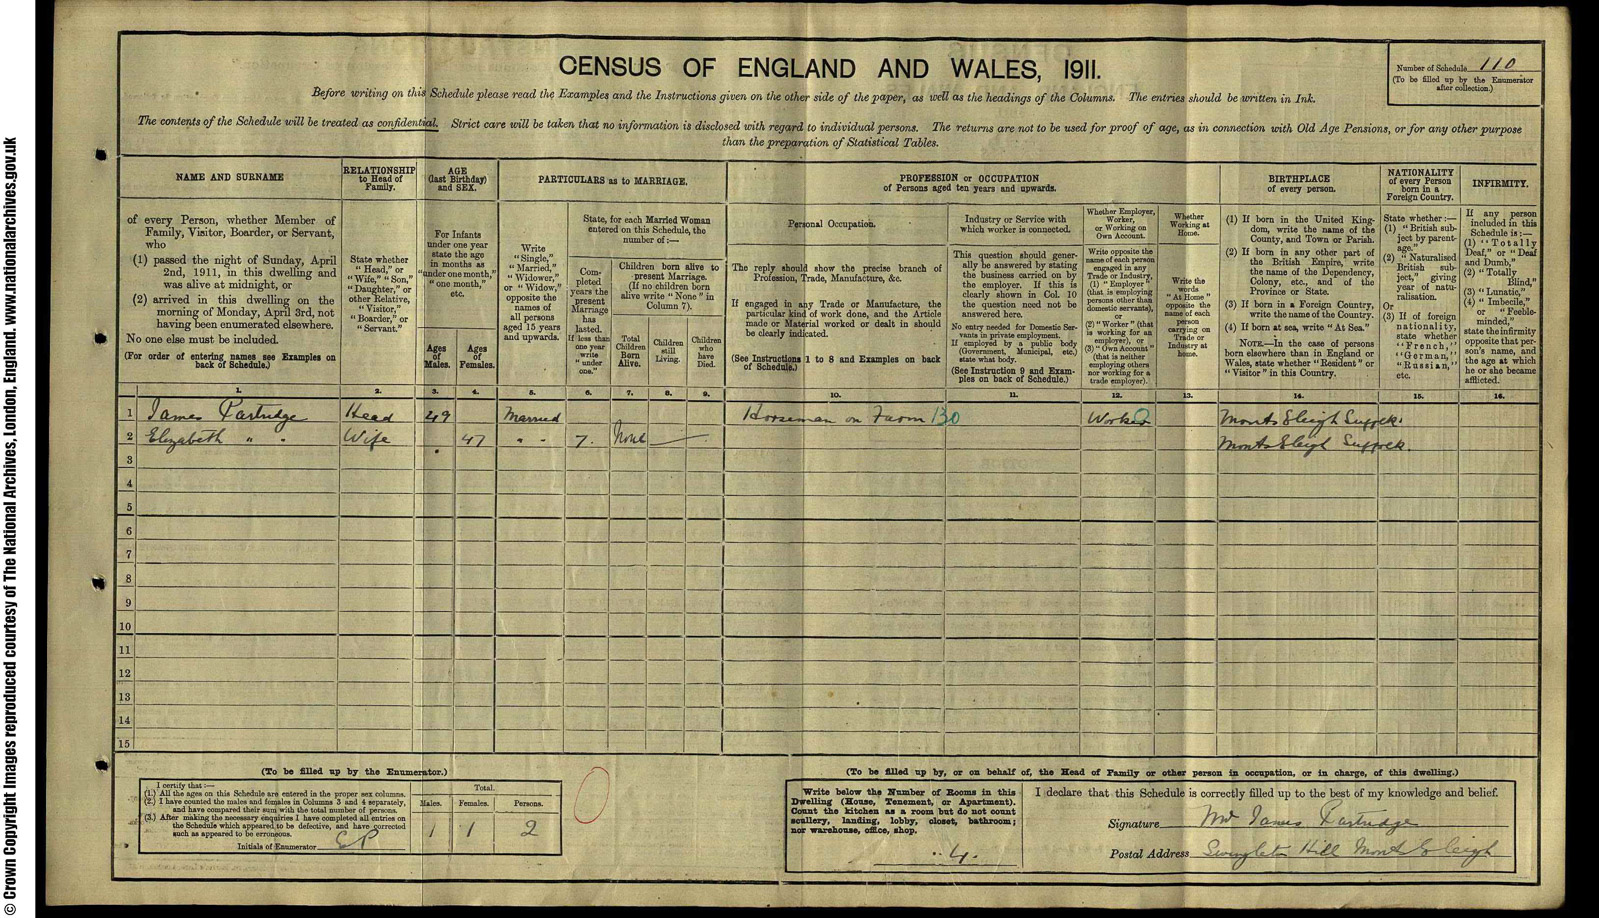 CENSUS OF ENGLAND AND WALES, 1911.
Number of Schedule 110
(To be filled up by the Enumerator
after collection.)
Before writing on this Schedule please read the Examples and the Instructions given on the other side of the paper, as well as the headings of the Columns. The entries should be written in Ink.
The contents of the Schedule will be treated as confidential. Strict care will be taken that no information is disclosed with regard to individual persons. The returns are not to be used for proof of age, as in connection with Old Age Pensions, or for any other purpose
than the preparation of Statistical Tables.
NAME AND SURNAME
of every Person, whether Member of
Family, Visitor, Boarder, or Servant,
who
(1) passed the night of Sunday, April
2nd, 1911, in this dwelling and
was alive at midnight, or
(2) arrived in this dwelling on the
morning of Monday, April 3rd, not
having been enumerated elsewhere.
No one else must be included.
(For order of entering names see Examples on
back of Schedule.)
RELATIONSHIP
to Head of
Family.
State whether
"Head," or
"Wife," "Son,"
"Daughter," or
other Relative,
"Visitor,"
"Boarder," or
"Servant."
AGE
(last Birthday)
and SEX.
For Infants
under one year
state the age
in months as
"under one month,"
"one month,"
etc.
Ages
of
Males.
Ages
of
Females.
PARTICULARS as to MARRIAGE.
Write
"Single,"
"Married,"
"Widower,"
or "Widow,"
opposite the
names of
all persons
aged 15 years
and upwards.
State, for each Married Woman
entered on this Schedule, the
number of:—
Com-
pleted
years the
present
Marriage
has
lasted.
If less than
one year
write
"under
one."
Children born alive to
present Marriage.
(If no children born
alive write "None" in
Column 7).
Total
Children
Born
Alive.
Children
still
Living.
Children
who
have
Died.
PROFESSION or OCCUPATION
of Persons aged ten years and upwards.
Personal Occupation.
The reply should show the precise branch of
Profession, Trade, Manufacture, &c.
If engaged in any Trade or Manufacture, the
particular kind of work done, and the Article
made or Material worked or dealt in should
be clearly indicated.
(See Instructions 1 to 8 and Examples on back
of Schedule.)
Industry or Service with
which worker is connected.
This question should gener-
ally be answered by stating
the business carried on by
the employer. If this is
clearly shown in Col. 10
the question need not be
answered here.
No entry needed for Domestic Ser-
vants in private employment.
If employed by a public body
(Government, Municipal, etc.)
state what body.
(See Instruction 9 and Exam-
ples on back of Schedule.)
Whether Employer,
Worker,
or Working on
Own Account.
Write opposite the
name of each person
engaged in any
Trade or Industry,
(1) "Employer"
(that is employing
persons other than
domestic servants),
or
(2) "Worker" (that
is working for an
employer), or
(3) "Own Account"
(that is neither
employing others
nor working for a
trade employer).
Whether
Working at
Home.
Write the
words
"At Home"
opposite the
name of each
person
carrying on
Trade or
Industry at
home.
BIRTHPLACE
of every person.
(1) If born in the United King-
dom, write the name of the
County, and Town or Parish.
(2) If born in any other part of
the British Empire, write
the name of the Dependency,
Colony, etc., and of the
Province or State.
(3) If born in a Foreign Country,
write the name of the Country.
(4) If born at sea, write "At Sea."
NOTE.—In the case of persons
born elsewhere than in England or
Wales, state whether "Resident" or
"Visitor" in this Country.
NATIONALITY
of every Person
born in a
Foreign Country.
State whether:—
(1) "British sub-
ject by parent-
age."
(2) "Naturalised
British sub-
ject," giving
year of natu-
ralisation.
Or
(3) If of foreign
nationality,
state whether
"French,"
"German,"
"Russian,"
etc.
INFIRMITY.
If any person
included in this
Schedule is:—
(1) "Totally
Deaf," or "Deaf
and Dumb,"
(2) "Totally
Blind,"
(3) "Lunatic,"
(4) "Imbecile,"
or "Feeble-
minded,"
state the infirmity
opposite that per-
son's name, and
the age at which
he or she became
afflicted.
1. 2. 3. 4. 5. 6. 7. 8. 9. 10. 11. 12. 13. 14. 15. 16.
1 James Partridge Head 49 Married Horseman on Farm 130 Worker Monts Eleigh Suffolk.
2 Elizabeth " " Wife 47 " " 7. None Monts Eleigh Suffolk.
3
4
5
6
7
8
9
10
11
12
13
14
15
(To be filled up by the Enumerator.)
I certify that:—
(1.) All the ages on this Schedule are entered in the proper sex columns.
(2.) I have counted the males and females in Columns 3 and 4 separately,
and have compared their sum with the total number of persons.
(3.) After making the necessary enquiries I have completed all entries on
the Schedule which appeared to be defective, and have corrected
such as appeared to be erroneous.
Initials of Enumerator EP
Total.
Males. Females. Persons.
1 1 2
(To be filled up by, or on behalf of, the Head of Family or other person in occupation, or in charge, of this dwelling.)
Write below the Number of Rooms in this
Dwelling (House, Tenement, or Apartment).
Count the kitchen as a room but do not count
scullery, landing, lobby, closet, bathroom;
nor warehouse, office, shop.
4.
I declare that this Schedule is correctly filled up to the best of my knowledge and belief.
Signature Mr James Partridge
Postal Address Swingleton Hill Monts Eleigh
© Crown Copyright Images reproduced courtesy of The National Archives, London, England. www.nationalarchives.gov.uk